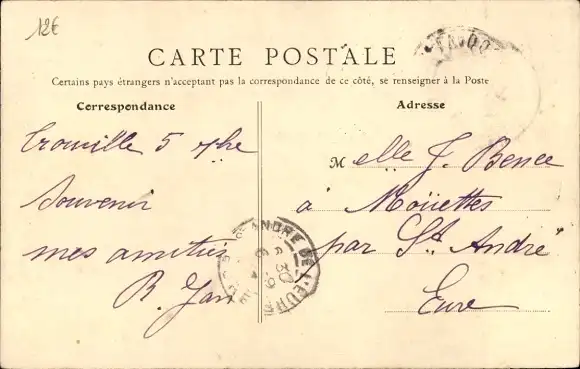 12€
CARTE POSTALE
Certains pays étrangers n'acceptant pas la correspondance de ce côté, se renseigner à la Poste
Correspondance
Adresse
Trouville 5 7bre
Souvenir
mes amitiés
R. Jan
Melle J. Bence
à Moüettes
par St. André
Eure
ST ANDRE DE L'EURE
6 30
6 - 9